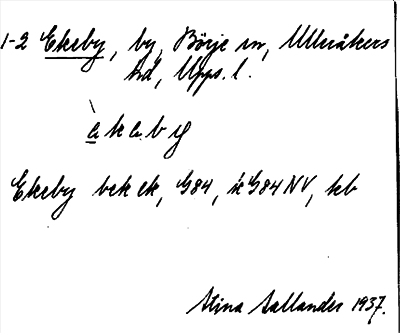 1-2 Ekeby, by, Börje sn, Ulleråkers
hd, Upps. l.
è k a b y
Ekeby bek ek, G84, ik G84 NV, kb
Stina Sallander 1937.